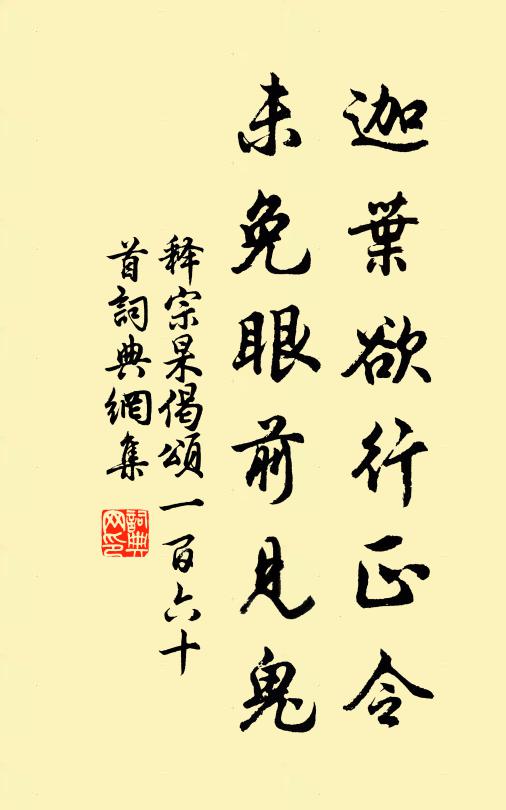 迦葉欲行正令
未免眼前見鬼
释宗杲偈頌一百六十
首詞典網集
詞典
网印